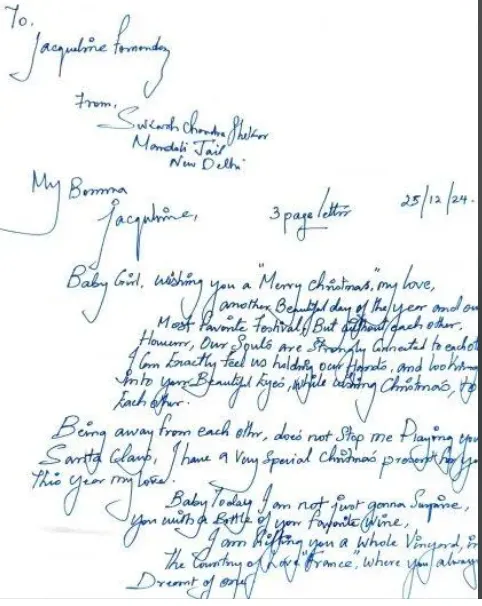 To.
Jacqueline Fernandez
From,
Sukash Chandra Shekar
Mandoli Jail
New Delhi
My Bomma
Jacquline,
3 page letter
25/12/24.
Baby Girl, wishing you a "Merry Christmas", my love,
another Beautiful day of the year and our
Most Favorite Festival, But without each other.
However, Our Souls are Strongly Connected to each oth
I Can Exactly Feel us holding our Hands, and looking
into your Beautiful Eyes, while wishing Christmas, to
Each other.
Being away from each othr, does not Stop me Playing you
Santa Claus, I have a Very Special Christmas present for yo
This year my love.
Baby Today I am not just gonna Surprise,
you with a Bottle of your Favorite Wine,
I am Gifting you a whole Vinyard, in
the Country of Love "France", where you alway
Dreamt of one